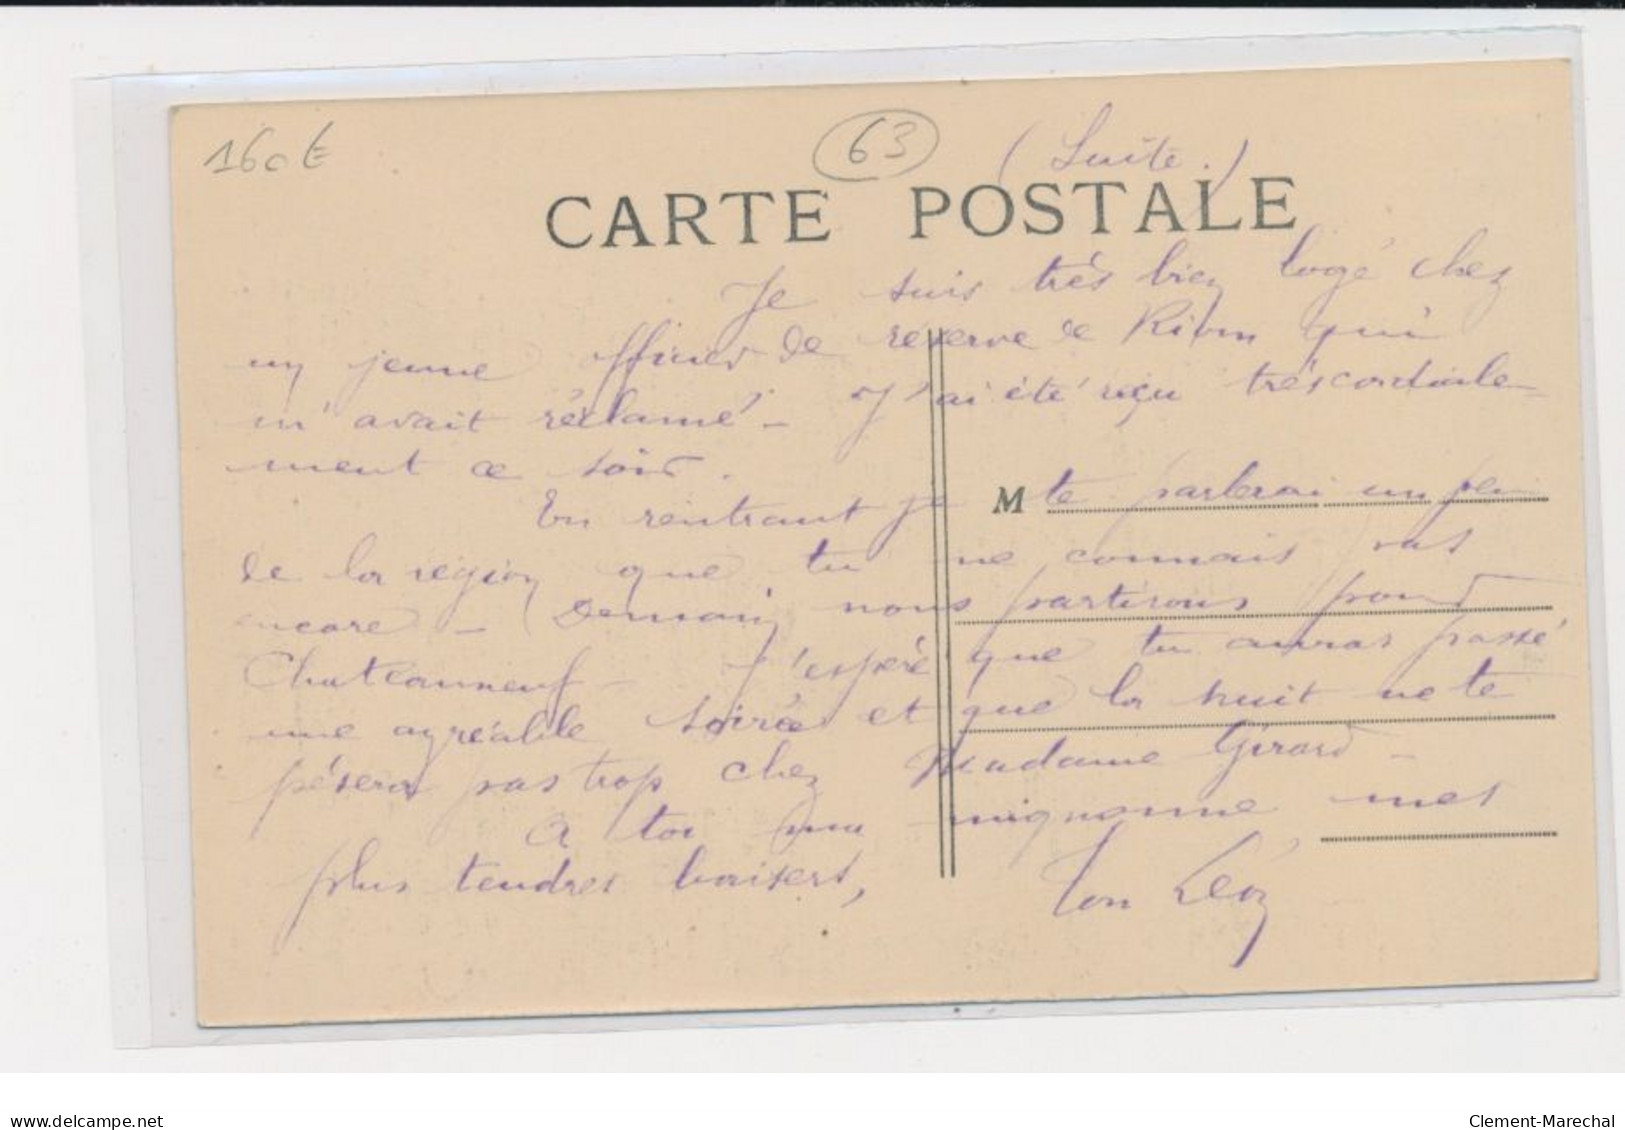 160 €
63
( Suite. )
CARTE POSTALE
Je suis très bien logé chez
un jeune officier de réserve de Riom qui
m'avait réclamé - J'ai été reçu très cordiale-
ment ce soir.
En rentrant je M te parlerai un peu
de la région que tu ne connais pas
encore - Demain nous partirons pour
Chateauneuf - J'espère que tu auras passé
une agréable soirée et que la nuit ne te
pésera pas trop chez Madame Girard -
A toi ma mignonne mes
plus tendres baisers,
Ton Léon
delcampe.net
Clement-Marechal